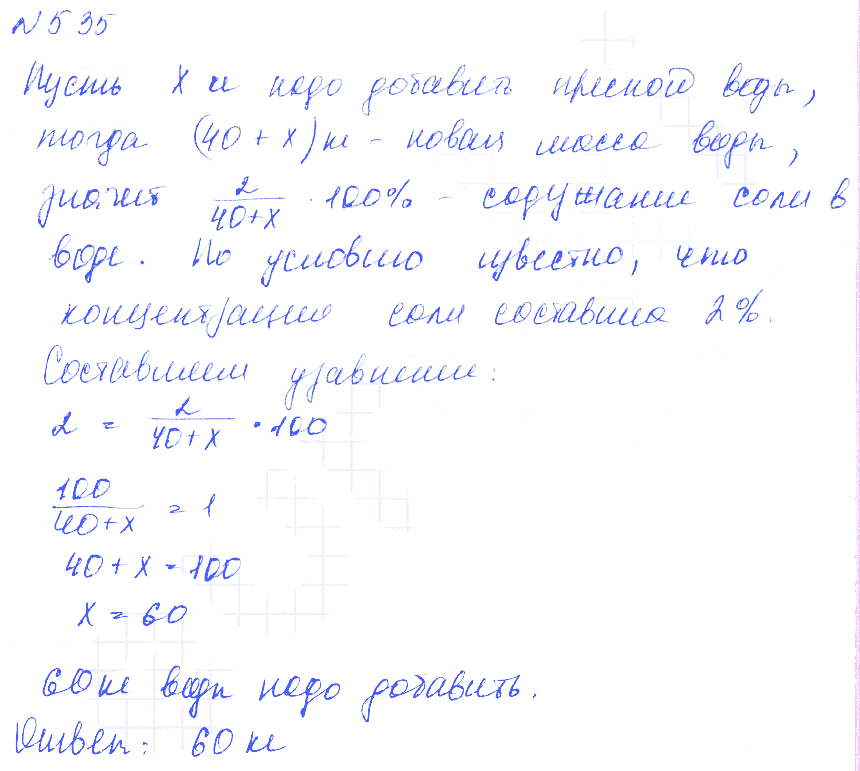 № 535
Пусть x кг надо добавить пресной воды,
тогда (40 + x) кг - новая масса воды,
значит 2/(40+x) · 100% - содержание соли в
воде. По условию известно, что
концентрация соли составила 2%.
Составляем уравнение:
2 = 2/(40+x) · 100
100/(40+x) = 1
40 + x = 100
x = 60
60 кг воды надо добавить.
Ответ: 60 кг